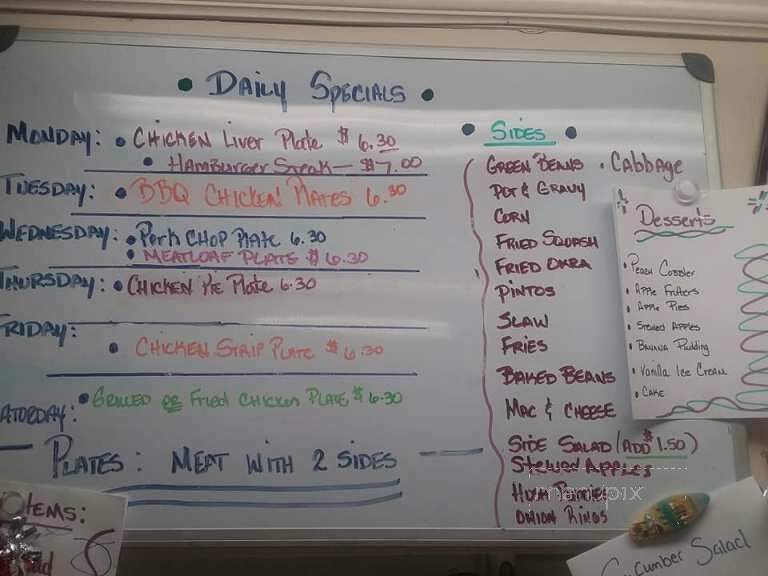 • DAILY SPECIALS •
MONDAY: • CHICKEN Liver Plate $6.30
• HAMBURGER STEAK — $7.00
TUESDAY: • BBQ CHICKEN PLATES 6.30
WEDNESDAY: • Pork CHOP PLATE 6.30
• MEATLOAF PLATE $6.30
THURSDAY: • CHICKEN PIE Plate 6.30
FRIDAY:
• CHICKEN STRIP PLATE $6.30
ATURDAY: • GRILLED OR Fried CHICKEN PLATE $6.30
PLATES: MEAT WITH 2 SIDES
• SIDES •
GREEN BEANS • CABBAGE
POT & GRAVY
CORN
FRIED SQUASH
FRIED OKRA
PINTOS
SLAW
FRIES
BAKED BEANS
MAC & CHEESE
SIDE SALAD (ADD $1.50)
STEWED APPLES
HUSH PUPPIES
ONION RINGS
Desserts
• PEACH COBBLER
• APPLE FRITTERS
• APPLE PIES
• STEWED APPLES
• BANANA PUDDING
• VANILLA ICE CREAM
• CAKE
TEMS:
Cucumber Salad
menupix